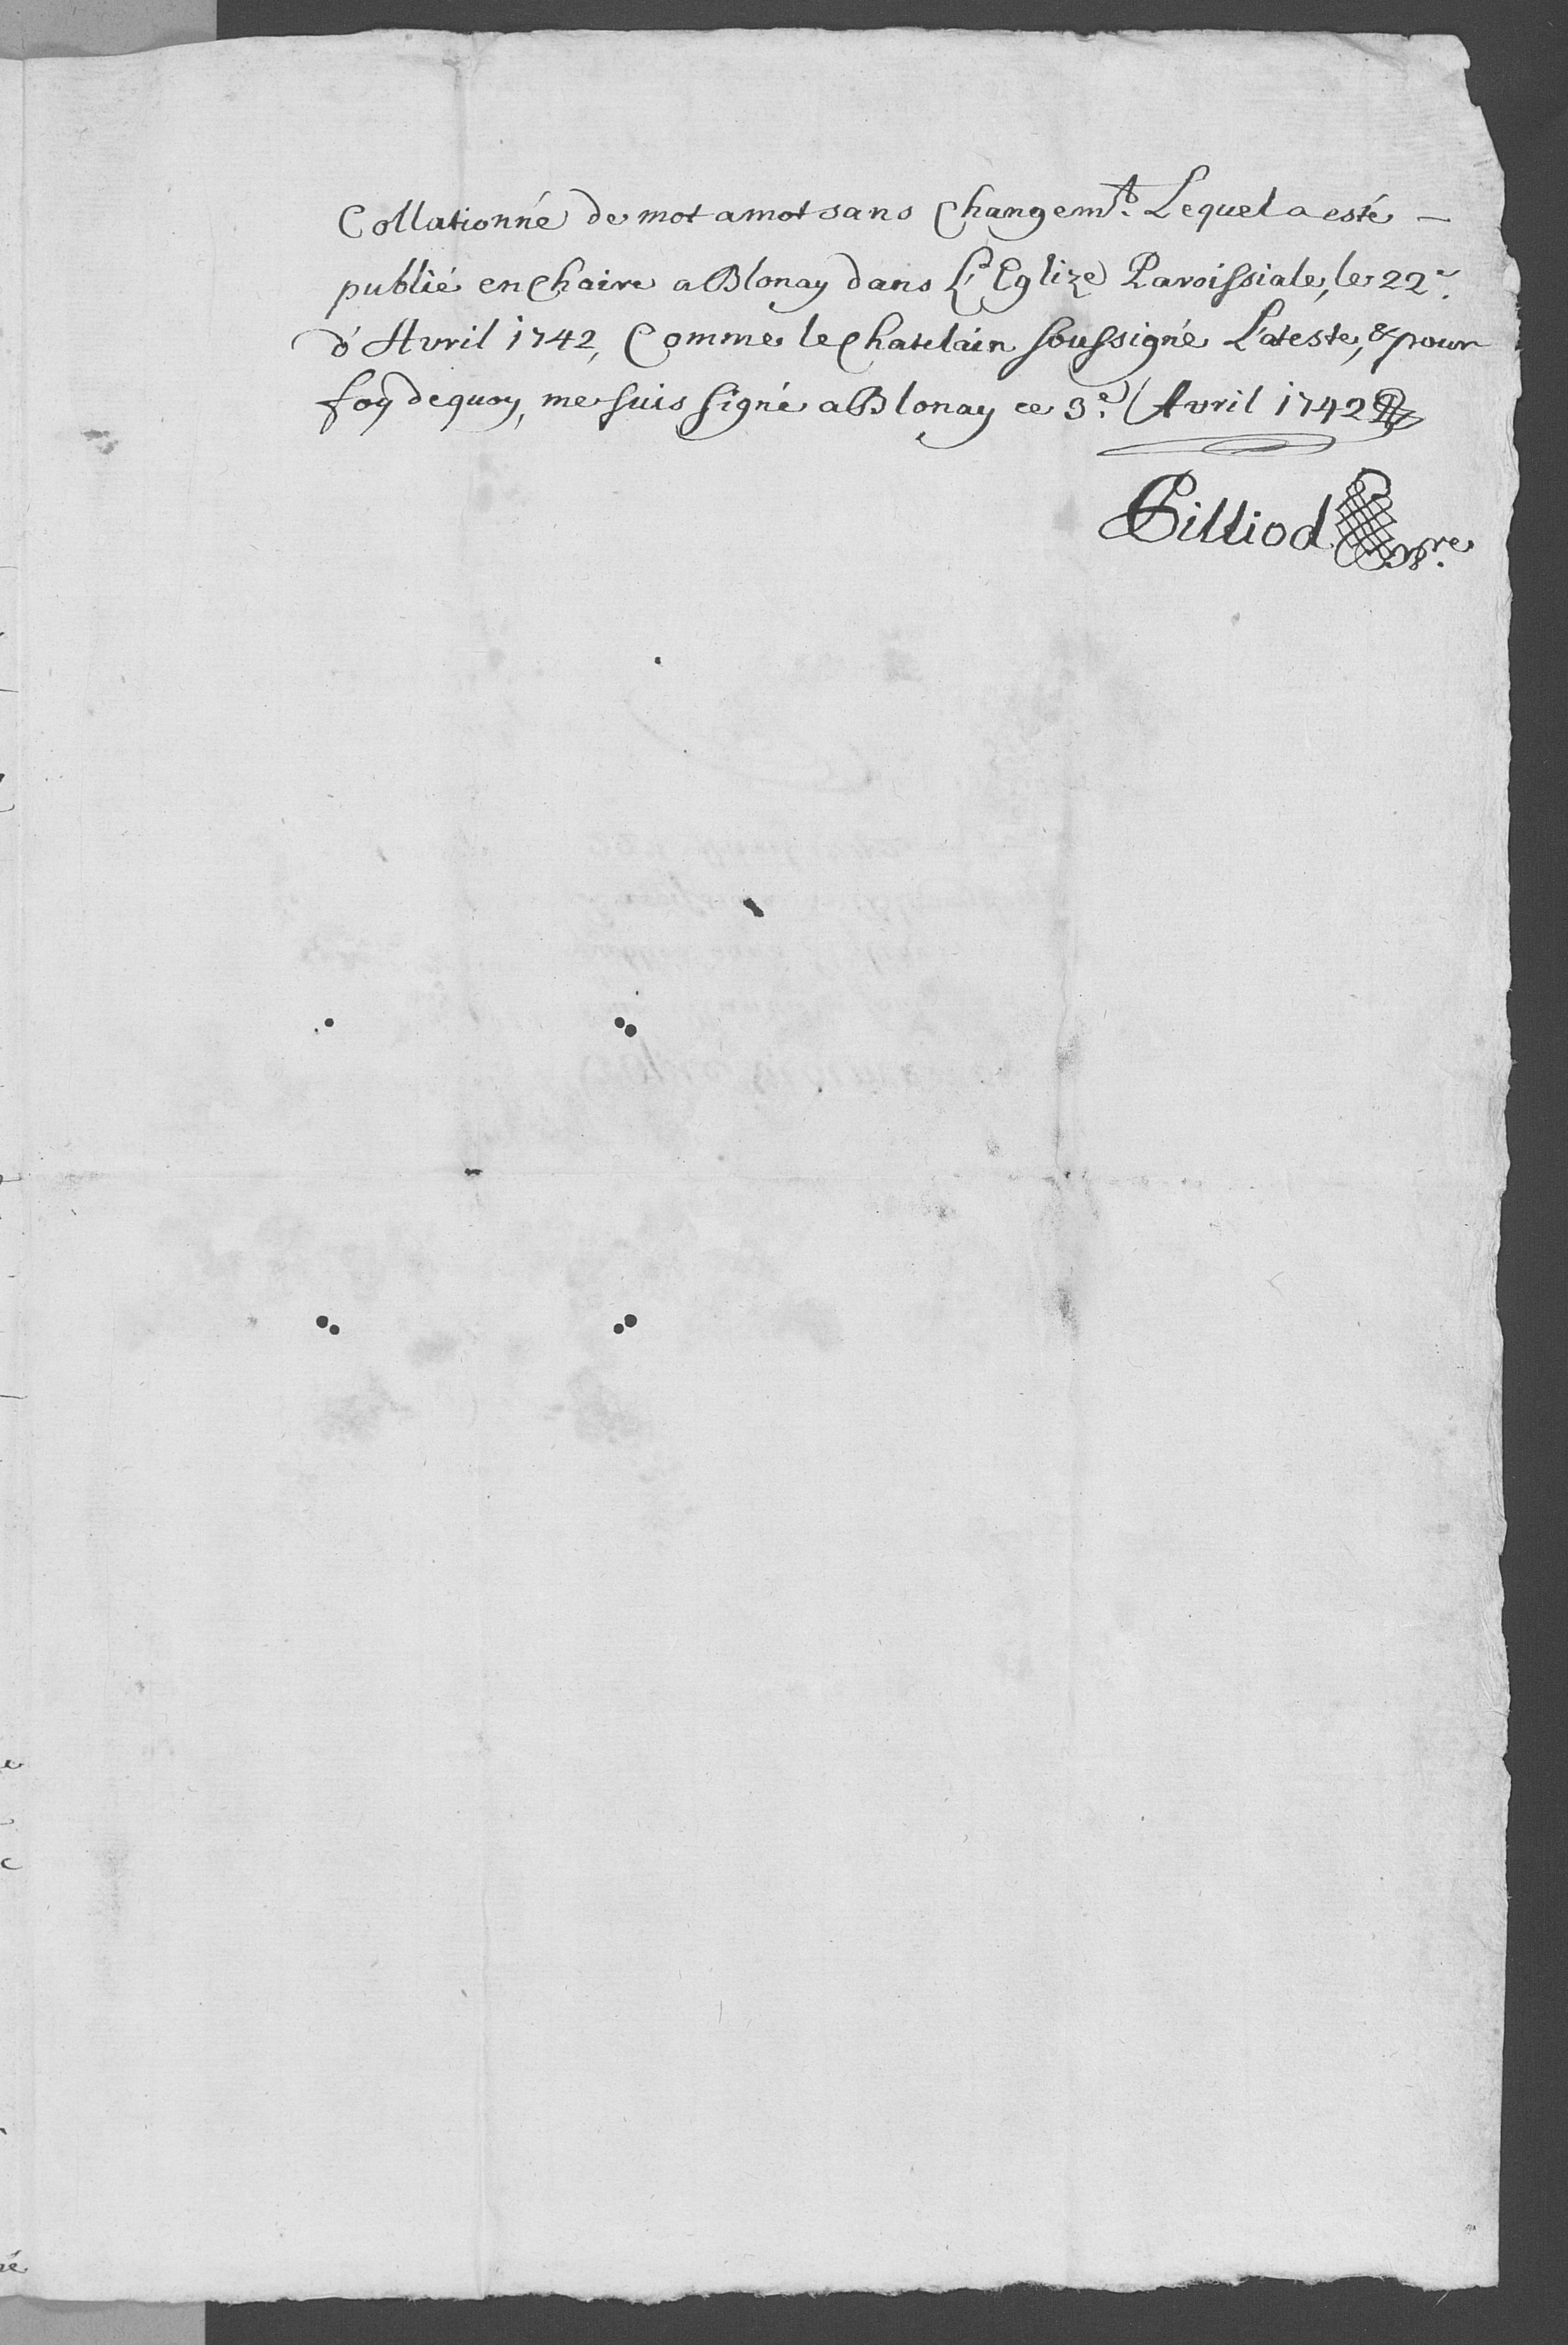 Collationné de mot a mot sans Changem.t Lequel a esté —
publié en Chaire a Blonay dans L'Eglize Paroissiale, le 22e.
d'Avril 1742, Comme le Chatelain soussigné L'ateste, & pour
foy dequoy, me suis signé a Blonay ce 3e. Avril 1742
Gilliod